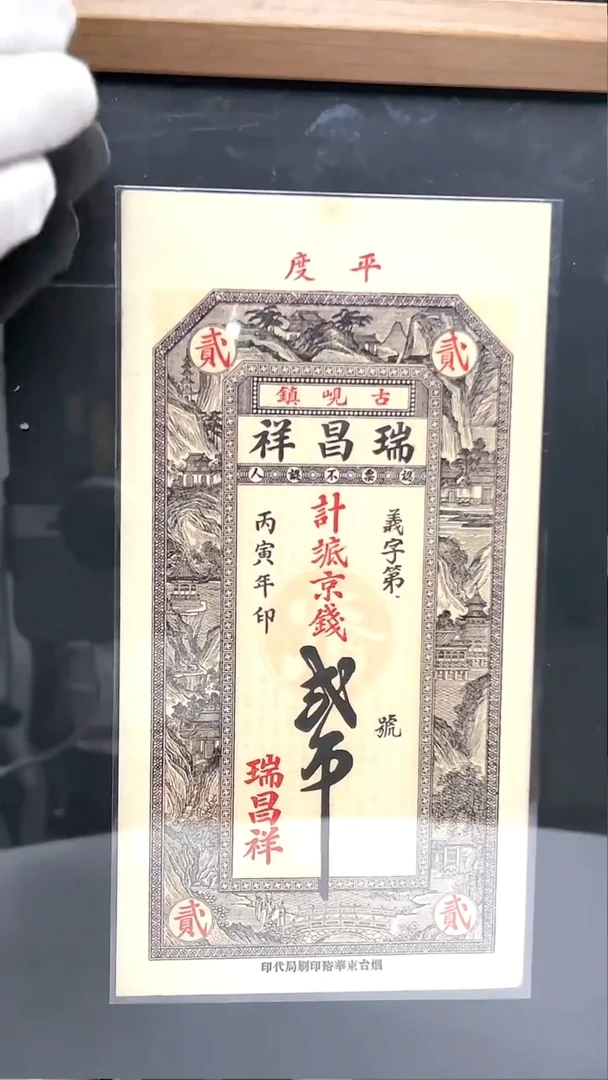 平度
貳
貳
古峴鎮
瑞昌祥
認票不認人
義字第
號
計京錢
弍吊
丙寅年印
瑞昌祥
貳
貳
烟台東華裕印刷局代印